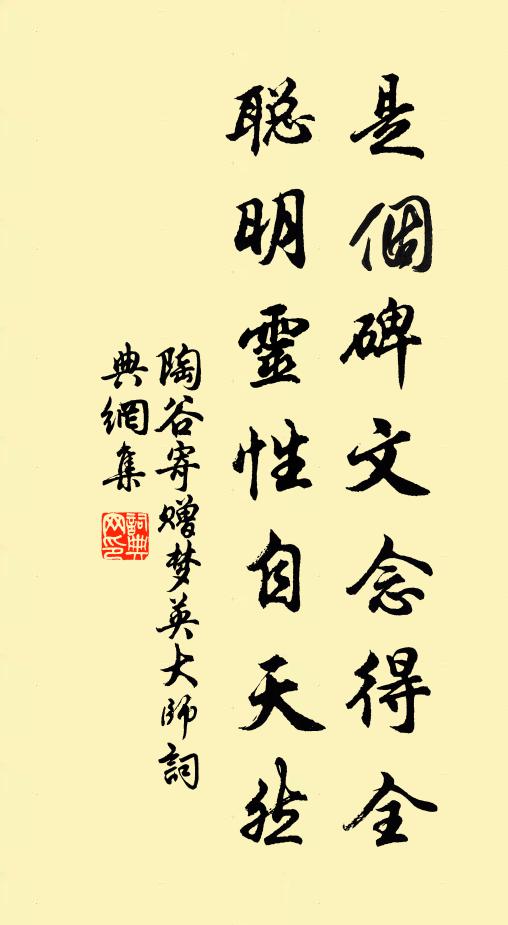 是個碑文念得全
聪明靈性自天然
陶谷寄赠梦英大師詞
典網集
詞典網印